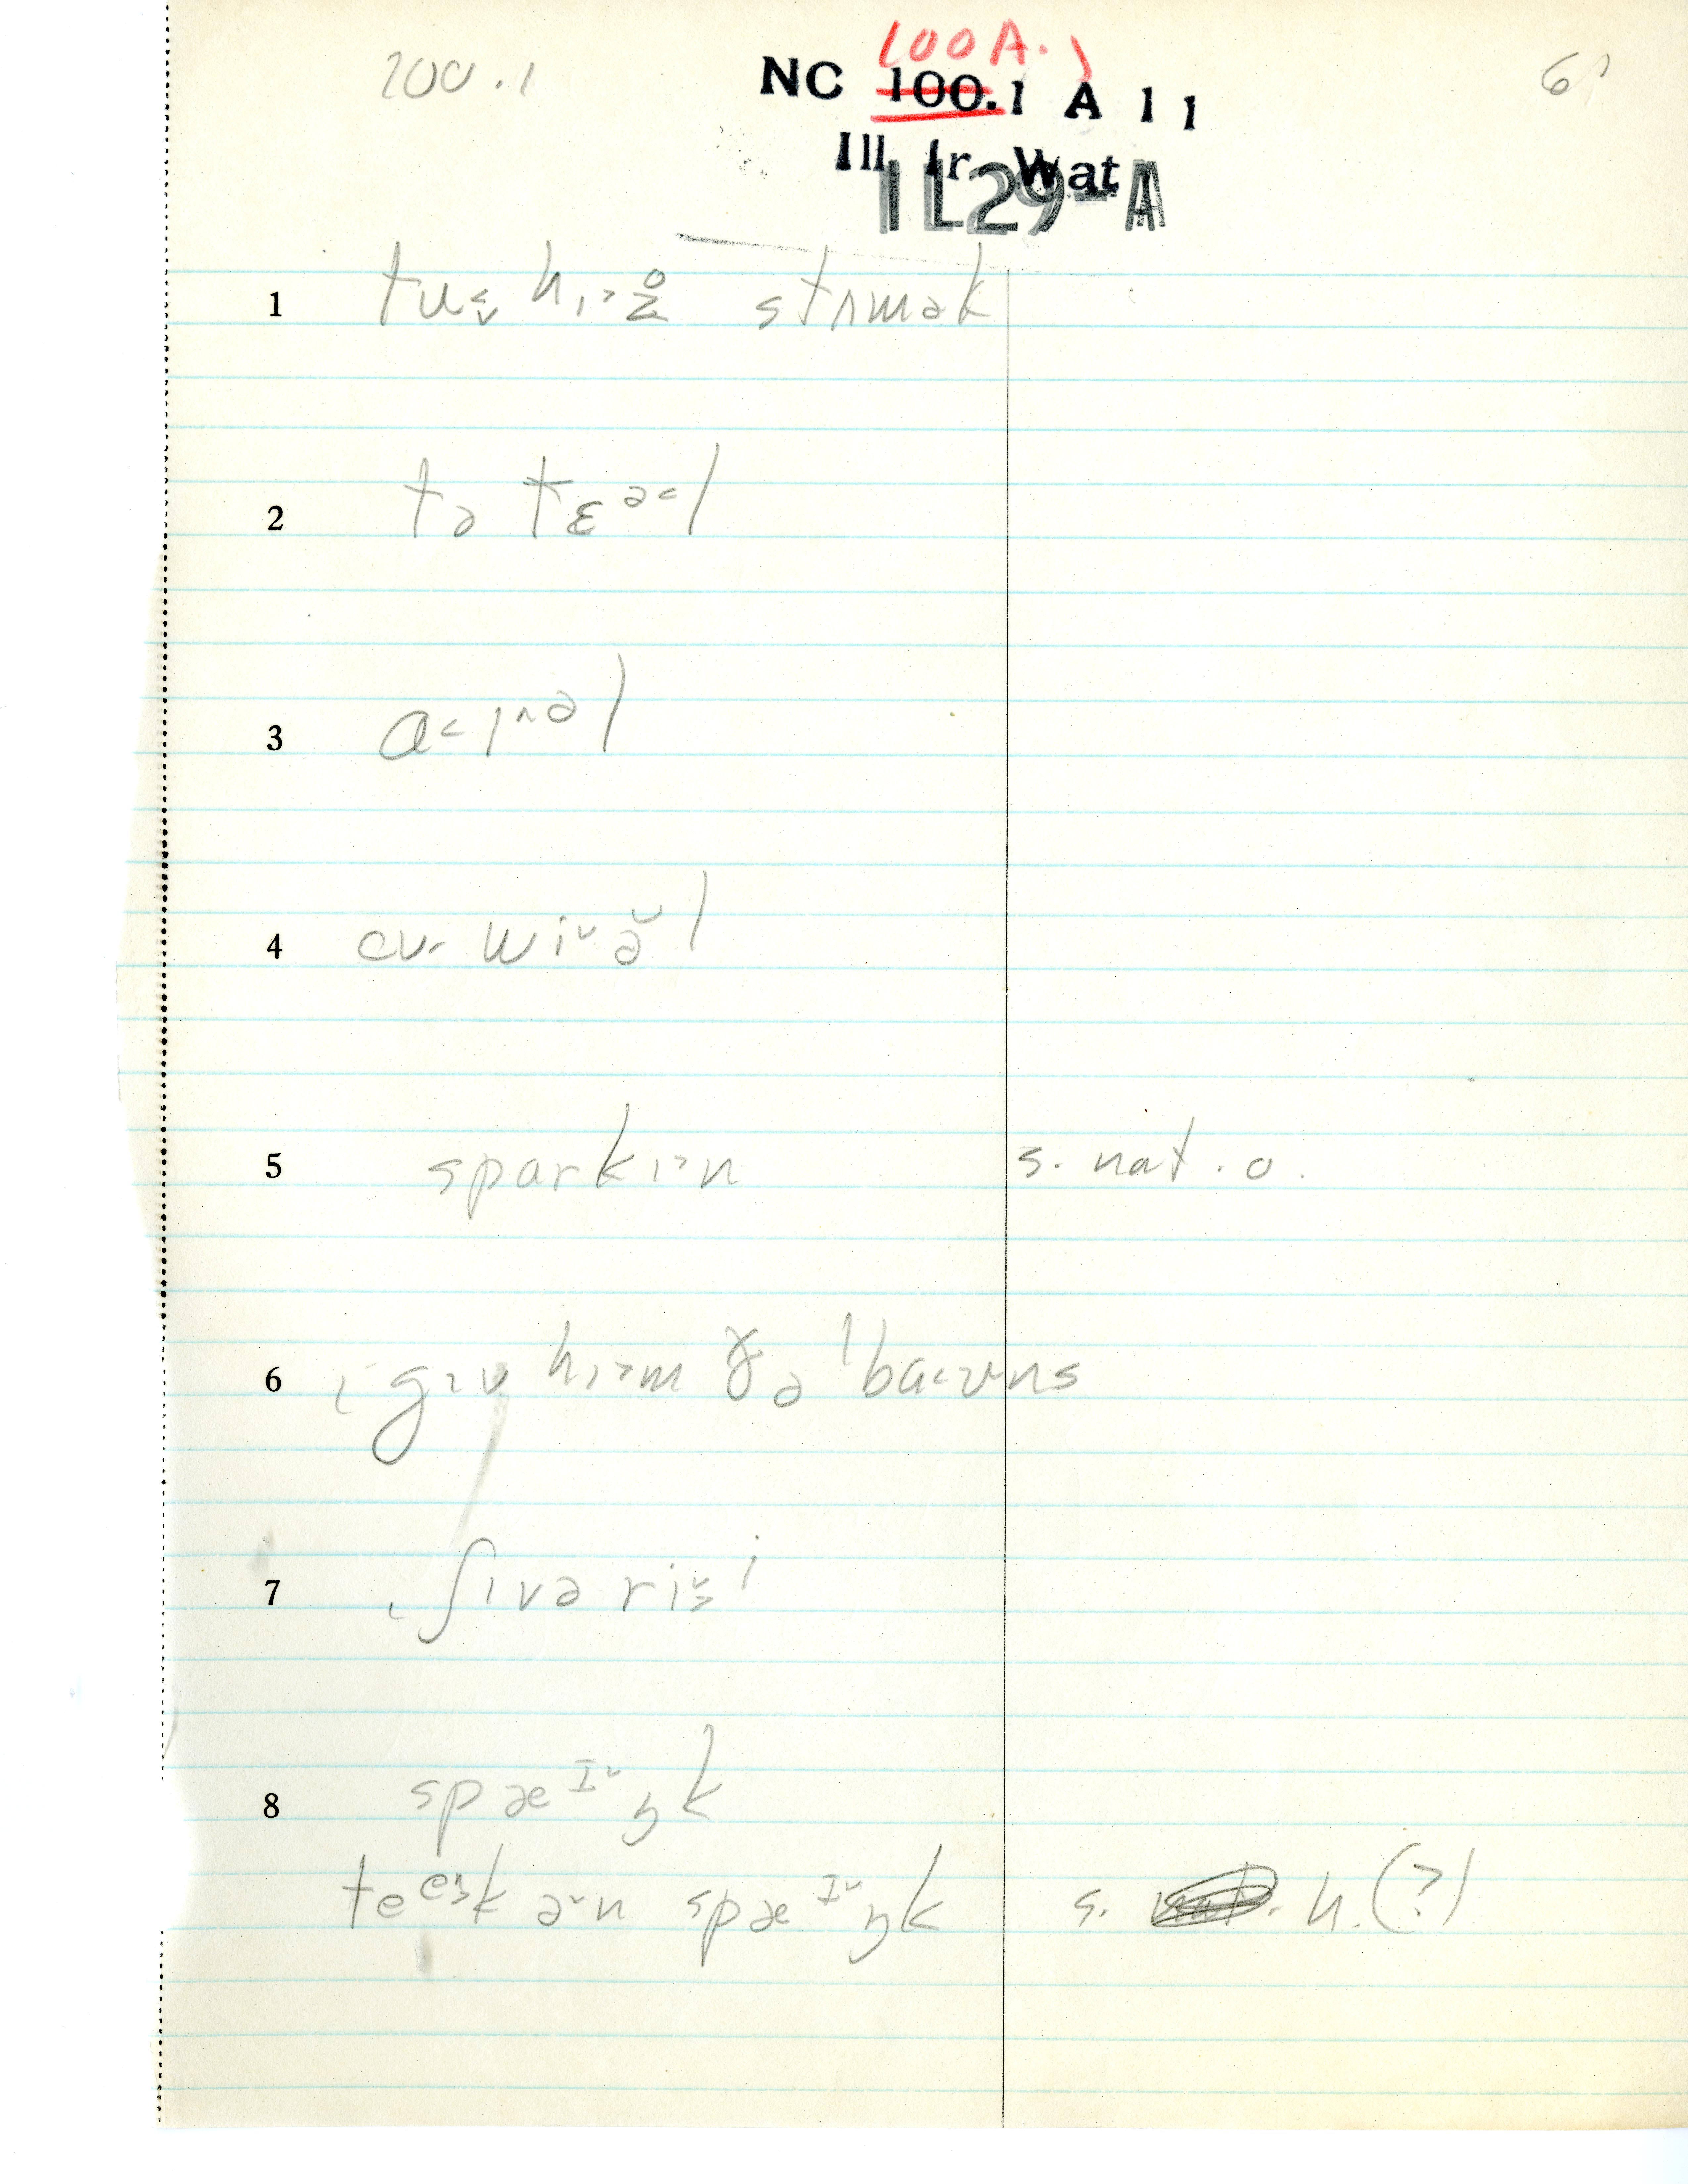 100A.)
200.1 NC 100.1 A 11 6
Ill Ir. Wat
IL29-A
1 tu hɪz̥ stʌmək
2 tə tɛəl
3 aɪʌəl
4 wiə̆l
5 sparkɪn s. nat. o.
6 gɪv hɪm ðə ˈbaʊns
7 ʃɪvəri
8 spæᴵŋk
teek ən spæᴵŋk s. h. (?)